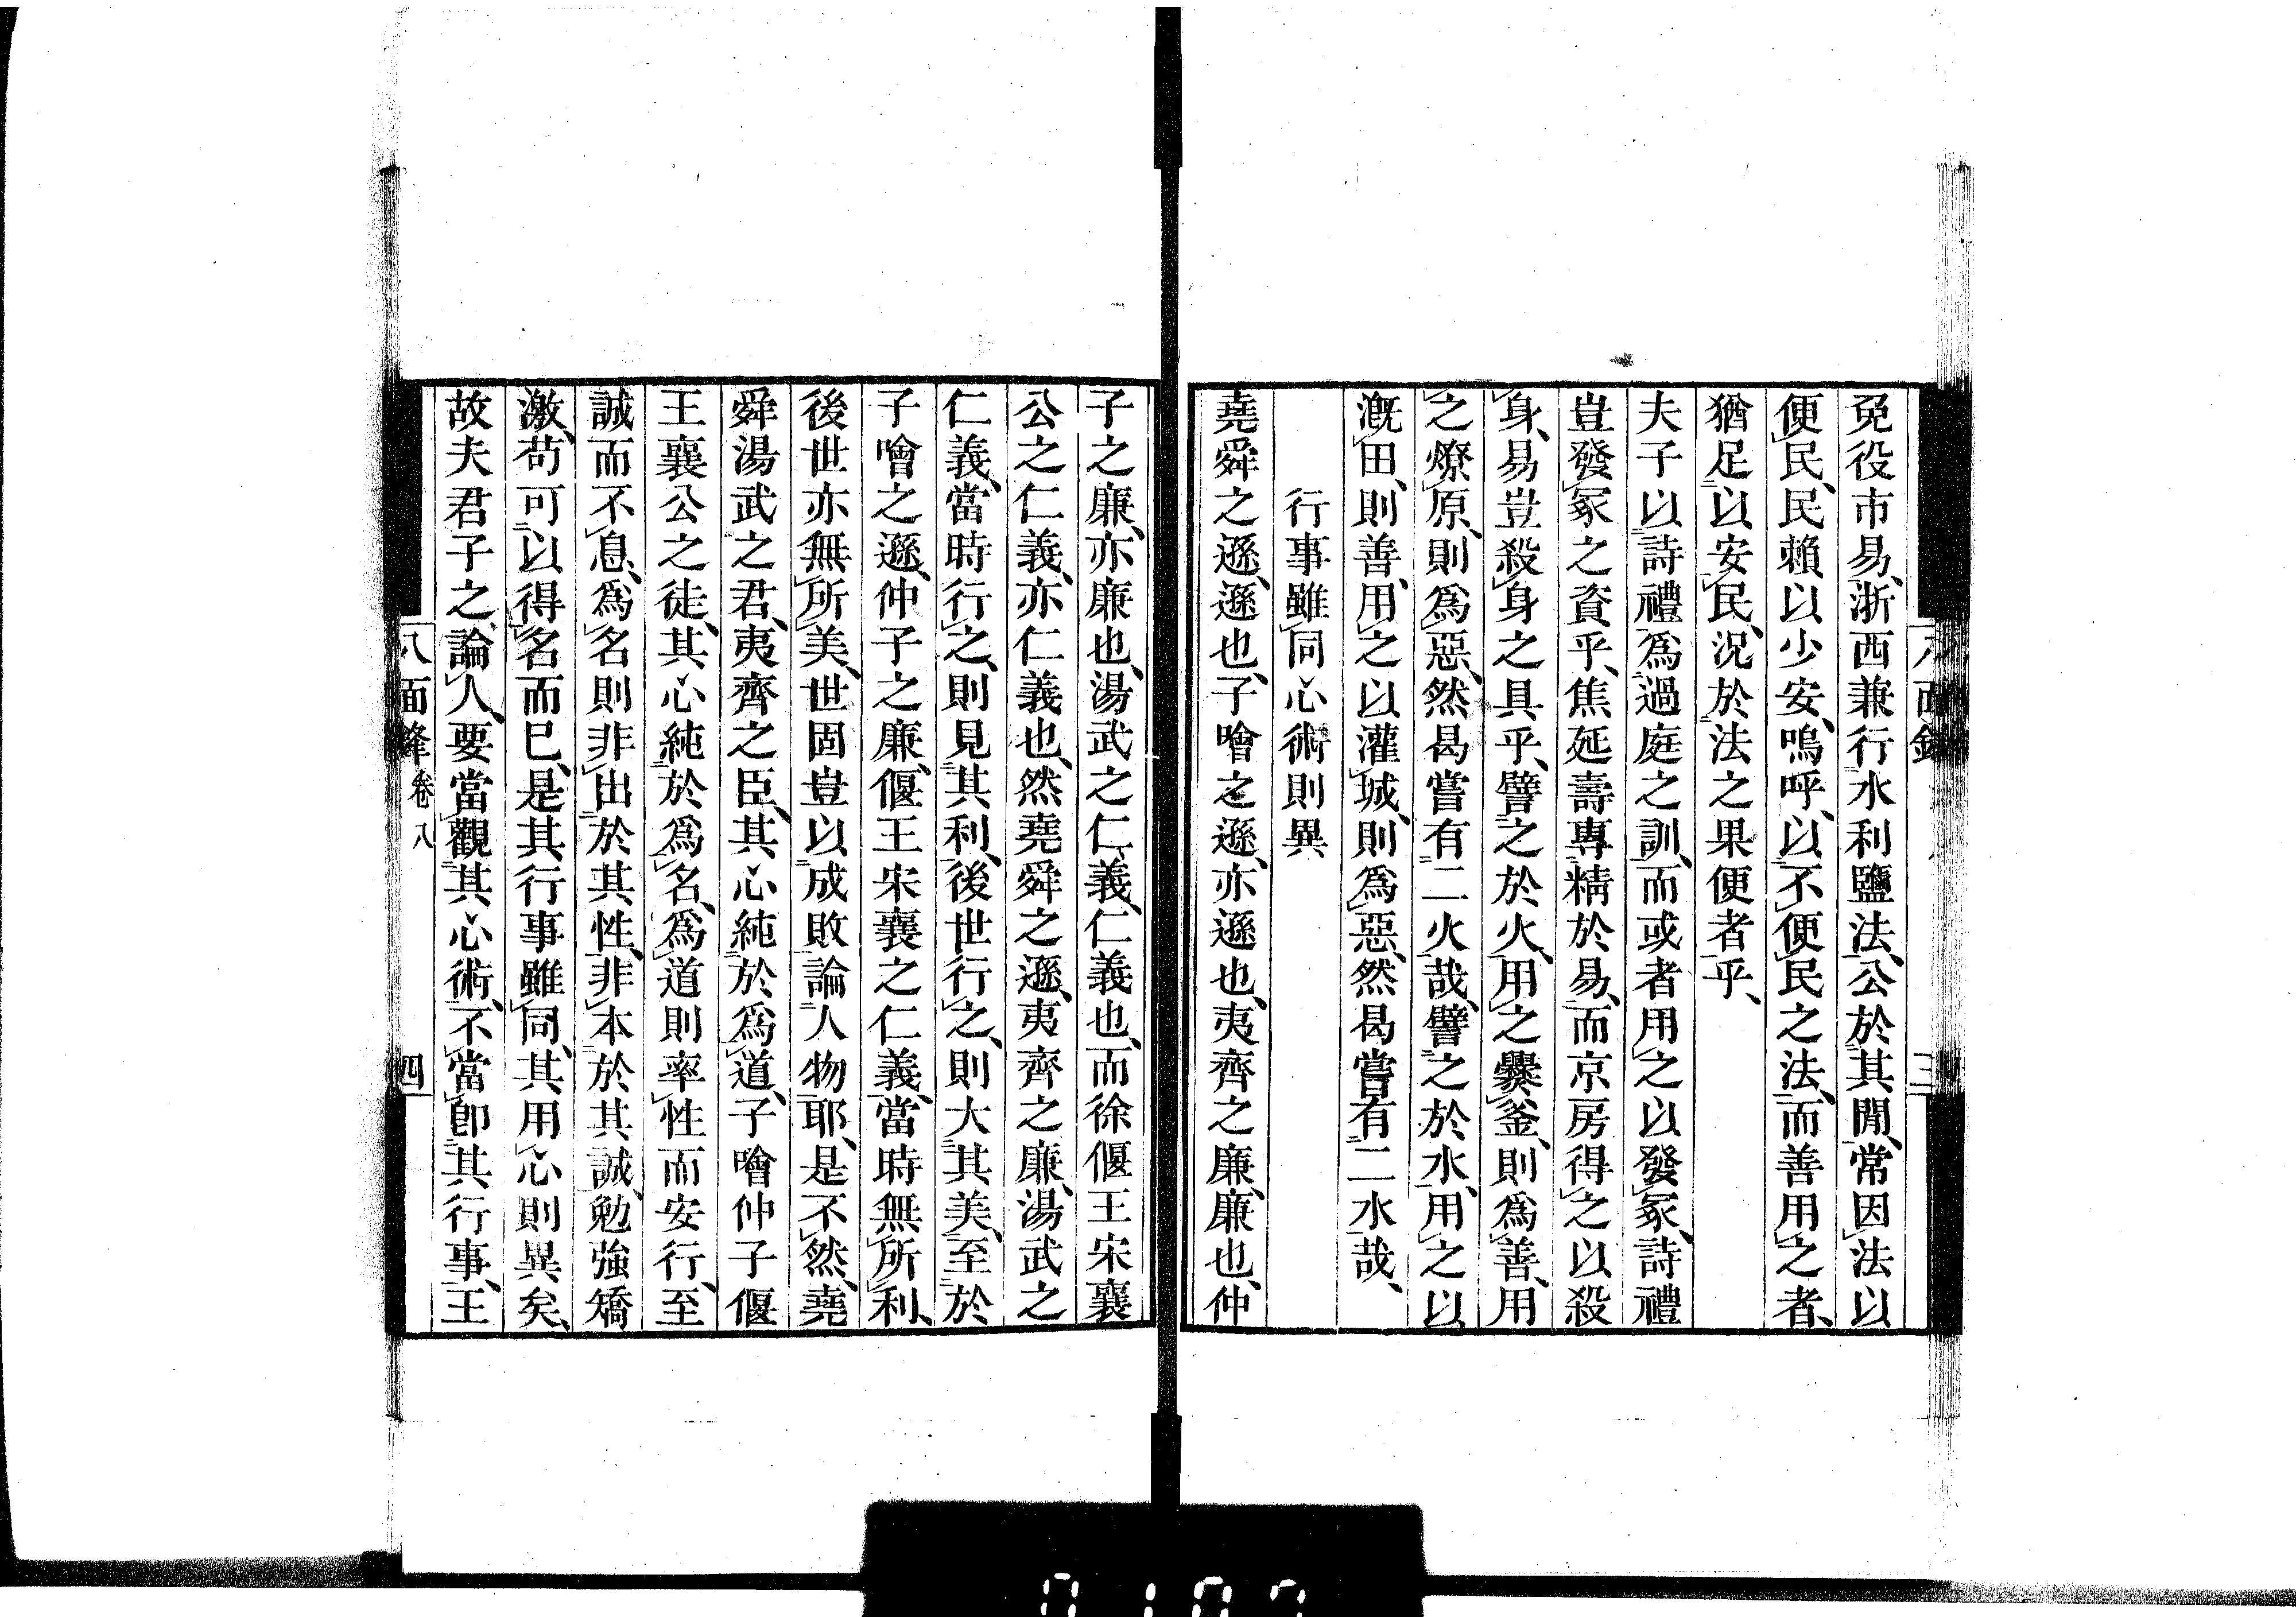 免役市易、浙西兼行水利鹽法、公於其閒、常因法以
便民、民賴以少安、嗚呼、以不便民之法、而善用之者、
猶足以安民、況於法之果便者乎、
夫子以詩禮爲過庭之訓、而或者用之以發冢、詩禮
豈發冢之資乎、焦延壽專精於易、而京房得之以殺
身、易豈殺身之具乎、譬之於火、用之爨釜、則爲善、用
之燎原、則爲惡、然曷嘗有二火哉、譬之於水、用之以
漑田、則善、用之以灌城、則爲惡、然曷嘗有二水哉、
行事雖同心術則異
堯舜之遜、遜也、子噲之遜、亦遜也、夷齊之廉、廉也、仲
子之廉、亦廉也、湯武之仁義、仁義也、而徐偃王宋襄
公之仁義、亦仁義也、然堯舜之遜、夷齊之廉、湯武之
仁義、當時行之、則見其利、後世行之、則大其美、至於
子噲之遜、仲子之廉、偃王宋襄之仁義、當時無所利、
後世亦無所美、世固豈以成敗論人物耶、是不然、堯
舜湯武之君、夷齊之臣、其心純於爲道、子噲仲子偃
王襄公之徒、其心純於爲名、爲道則率性而安行、至
誠而不息、爲名則非出於其性、非本於其誠、勉強矯
激、苟可以得名而已、是其行事雖同、其用心則異矣、
故夫君子之論人、要當觀其心術、不當卽其行事、王
八面鋒 卷八 四